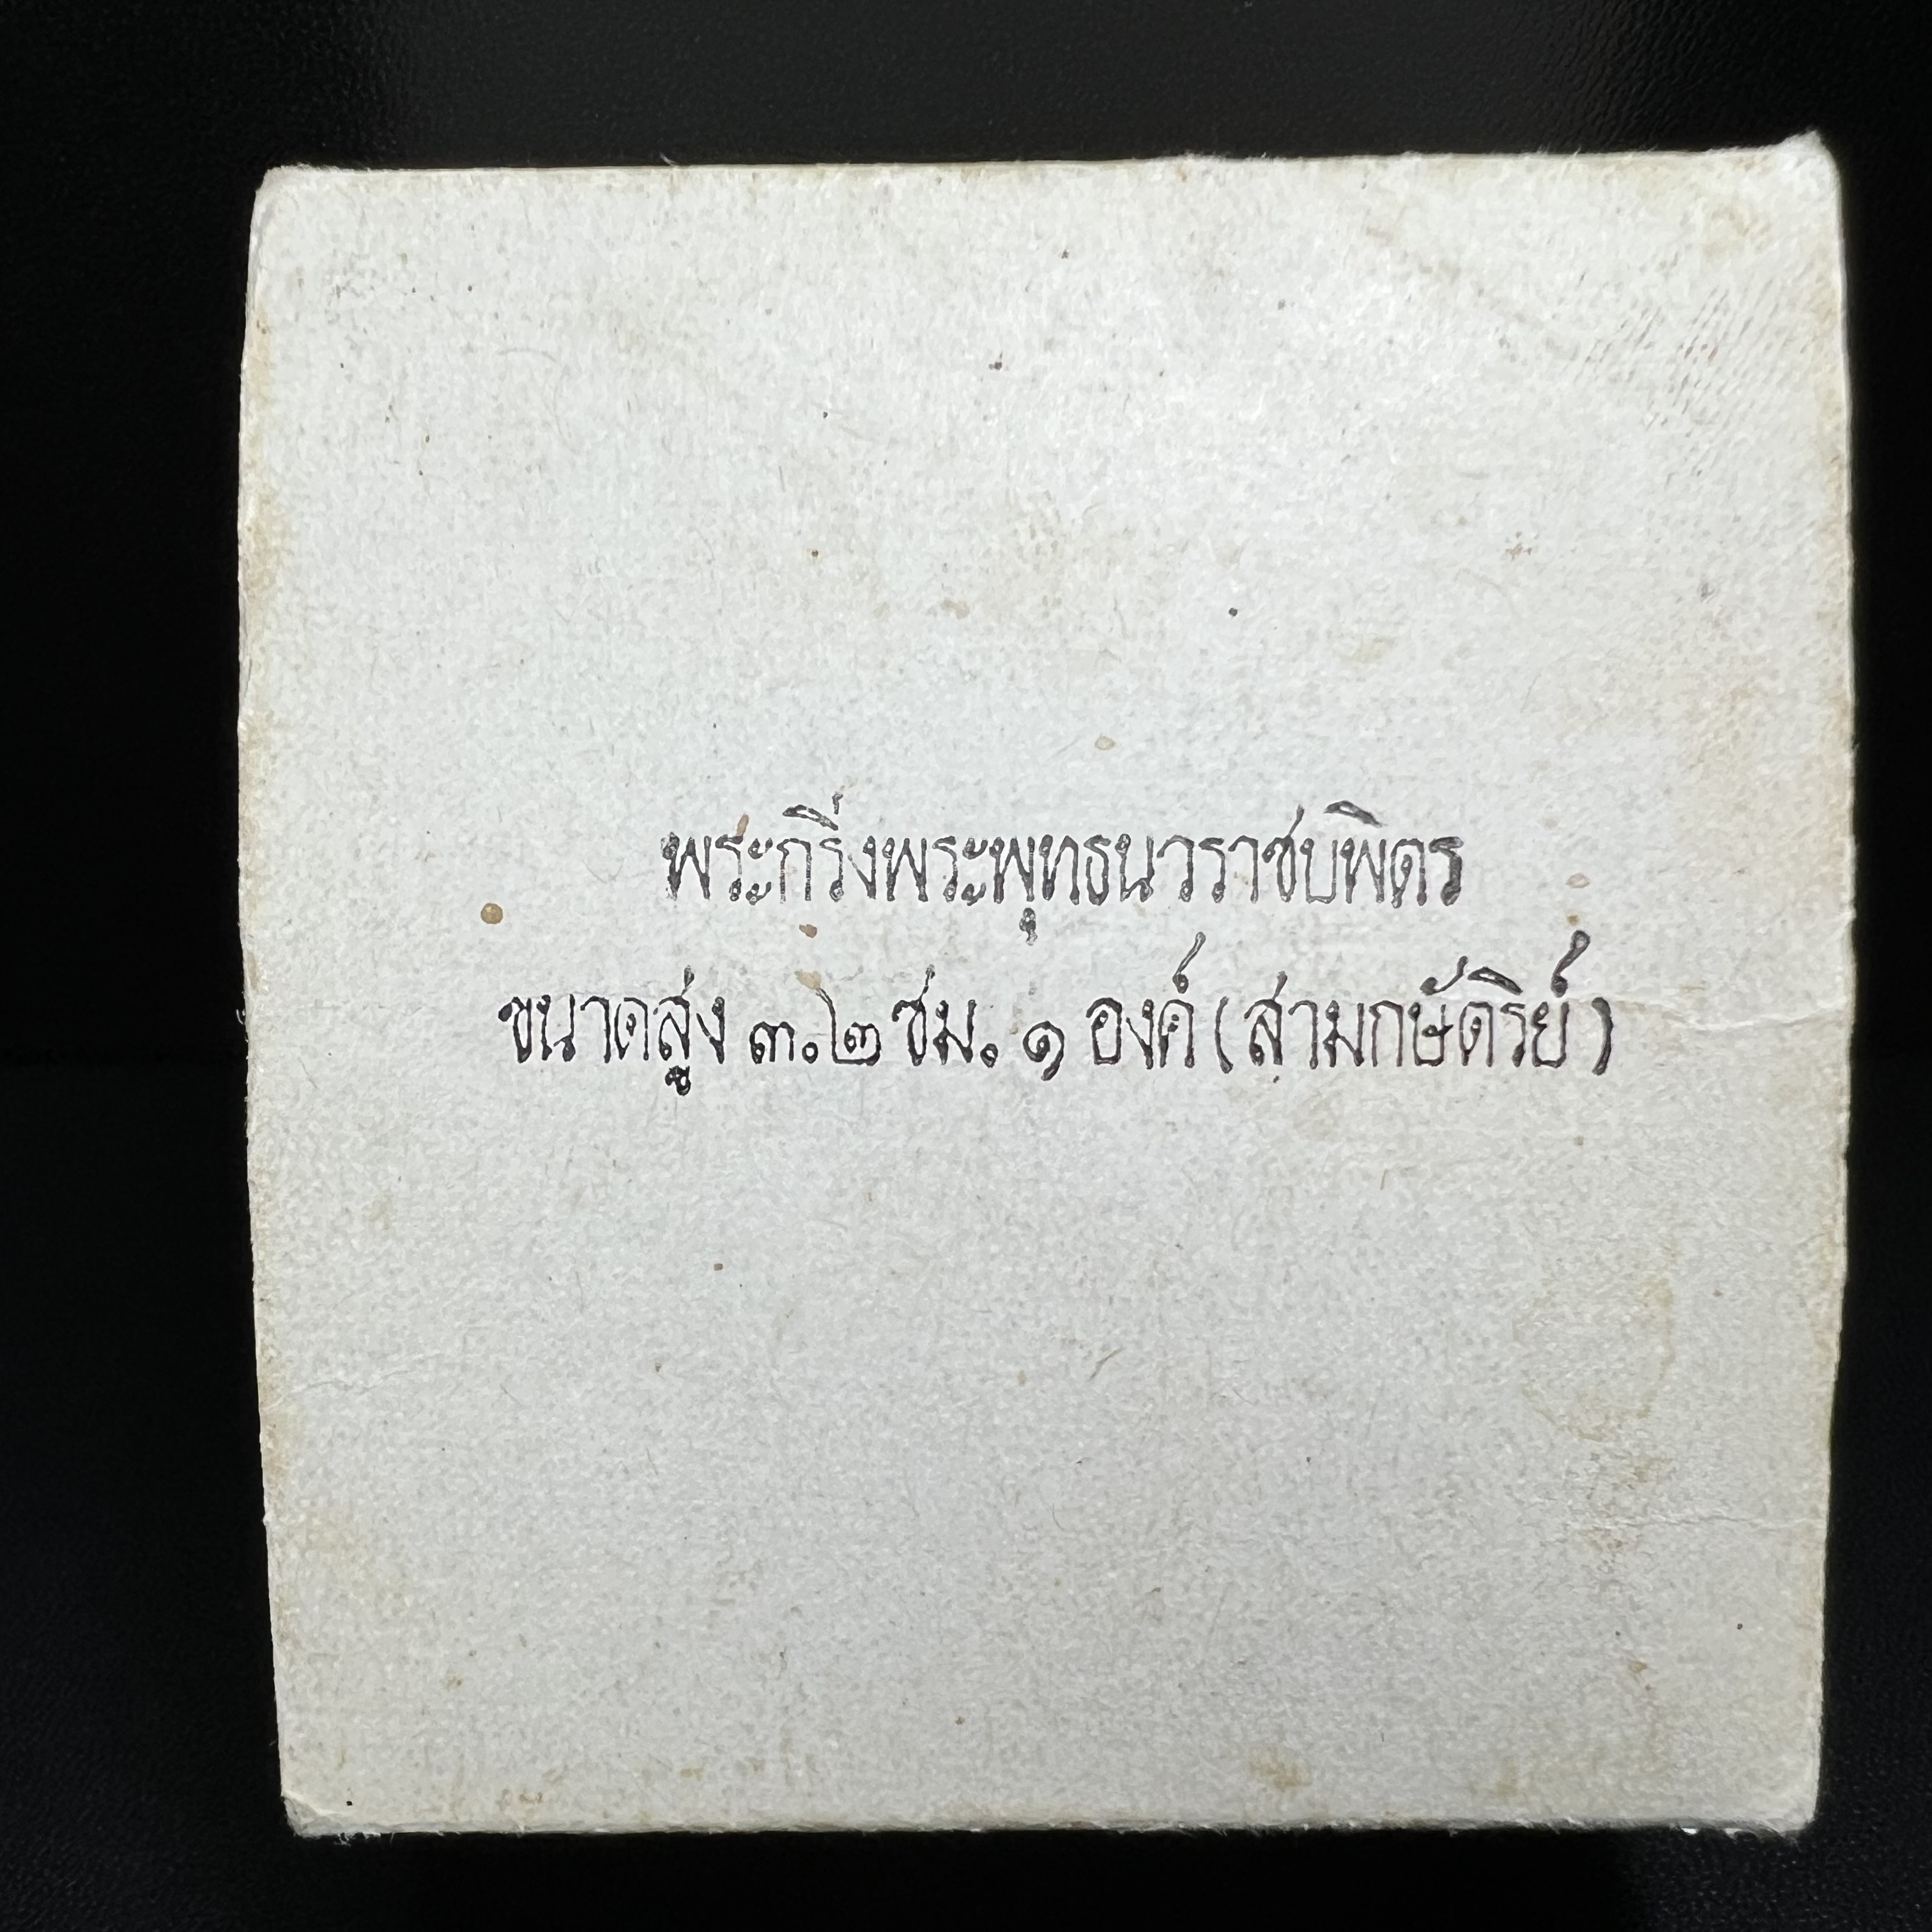 พระกริ่งพระพุทธนวราชบพิตร
ขนาดสูง ๓.๒ ซม. ๑ องค์ (สามกษัตริย์)